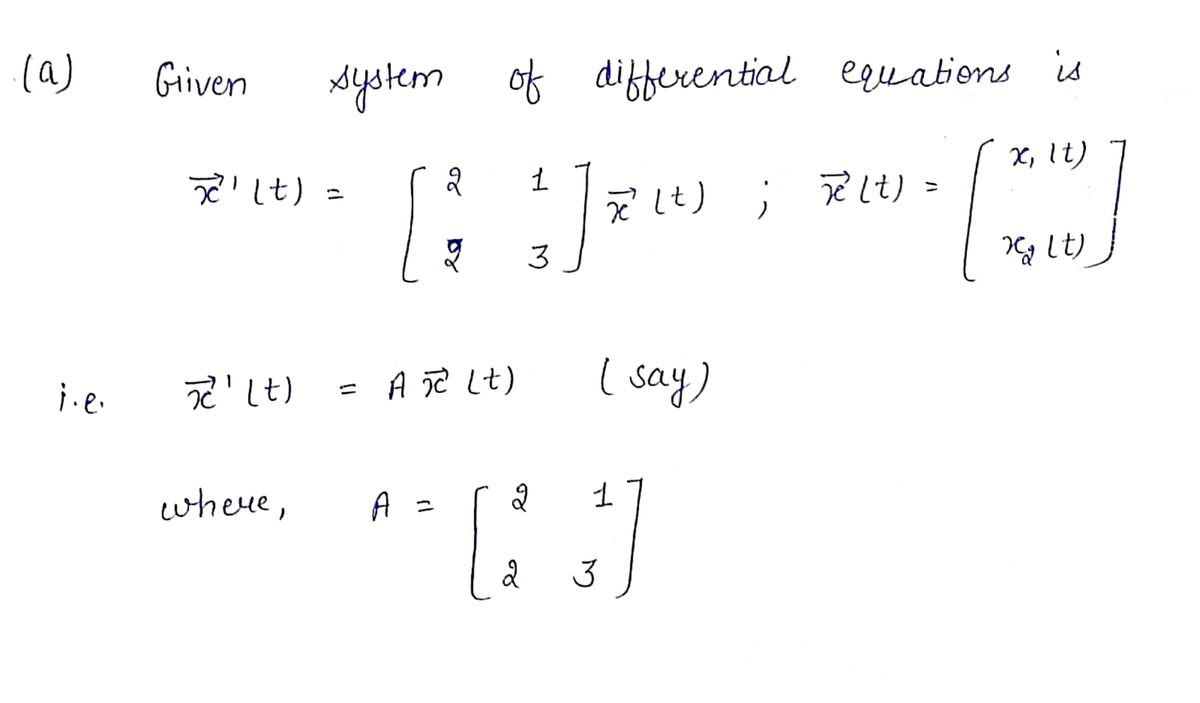 (a) Given system of differential equations is
x⃗'(t) = [ 2 1 ; 2 3 ] x⃗(t) ; x⃗(t) = [ x₁(t) ; x₂(t) ]
i.e. x⃗'(t) = A x⃗(t) (say)
where, A = [ 2 1 ; 2 3 ]